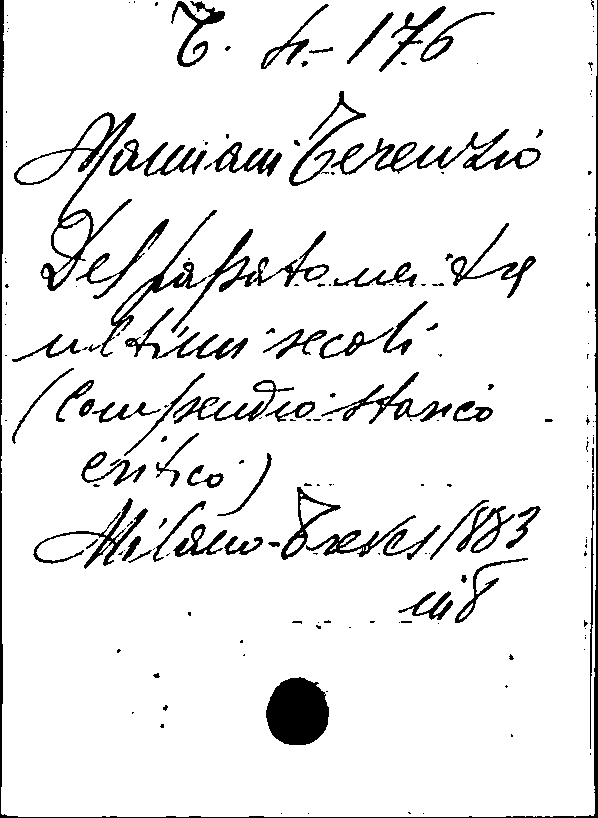 T. 4.- 176
Mamiani Terenzio
Del papato nei tre
ultimi secoli
(Compendio storico
critico)
Milano - Treves 1883
in 8